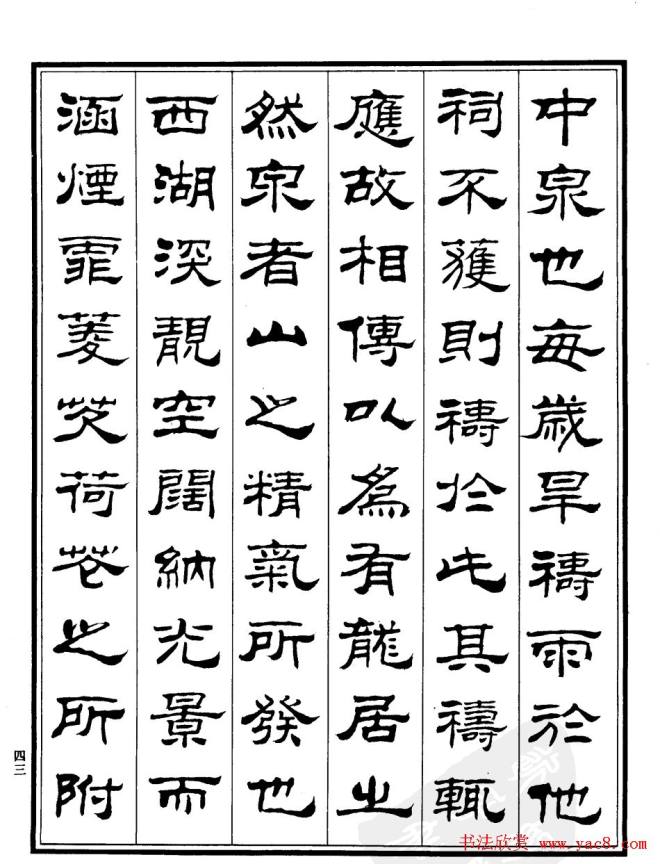 中泉也每歲旱禱雨於他
祠不獲則禱於此其禱輒
應故相傳以為有龍居之
然泉者山之精氣所發也
西湖深靚空闊納光景而
涵煙霏菱芡荷花之所附
四三
书法欣赏 www.yac8.com